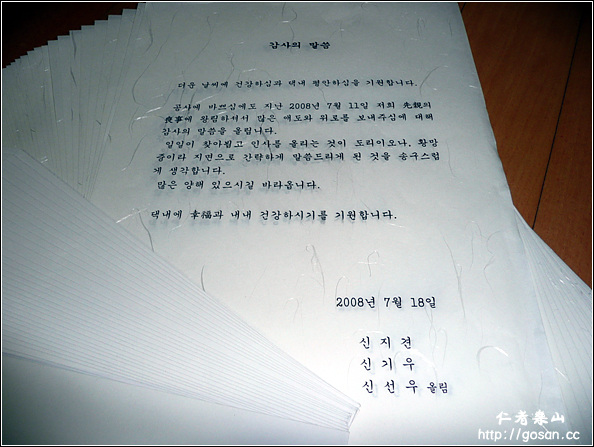 감사의 말씀
더운 날씨에 건강하심과 댁내 평안하심을 기원합니다.
공사에 바쁘심에도 지난 2008년 7월 11일 저희 先親의
喪事에 왕림하셔서 많은 애도와 위로를 보내주심에 대해
감사의 말씀을 올립니다.
일일이 찾아뵙고 인사를 올리는 것이 도리이오나, 황망
중이라 지면으로 간략하게 말씀드리게 된 것을 송구스럽
게 생각합니다.
많은 양해 있으시길 바라옵니다.
댁내에 幸福과 내내 건강하시기를 기원합니다.
2008년 7월 18일
신지견
신기우
신선우 올림
仁者樂山
http://gosan.cc